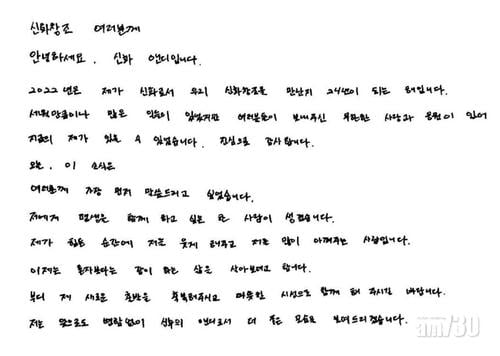 신화창조 여러분께
안녕하세요. 신화 앤디입니다.
2022년은 제가 신화로서 우리 신화창조를 만난지 24년이 되는 해입니다.
세월만큼이나 많은 일들이 있었지만 여러분들이 보내주신 무한한 사랑과 응원이 있어
지금의 제가 있을 수 있었습니다. 진심으로 감사합니다.
오늘, 이 소식은
여러분께 가장 먼저 말씀드리고 싶었습니다.
저에게 평생을 함께 하고 싶은 한 사람이 생겼습니다.
제가 힘든 순간에 저를 웃게 해주고 저를 많이 아껴주는 사람입니다.
이제는 혼자보다는 같이 하는 삶을 살아보려고 합니다.
부디 제 새로운 출발을 축복해주시고 따뜻한 시선으로 함께 해 주시길 바랍니다.
저는 앞으로도 변함없이 신화의 앤디로서 더 좋은 모습을 보여드리겠습니다.
am730